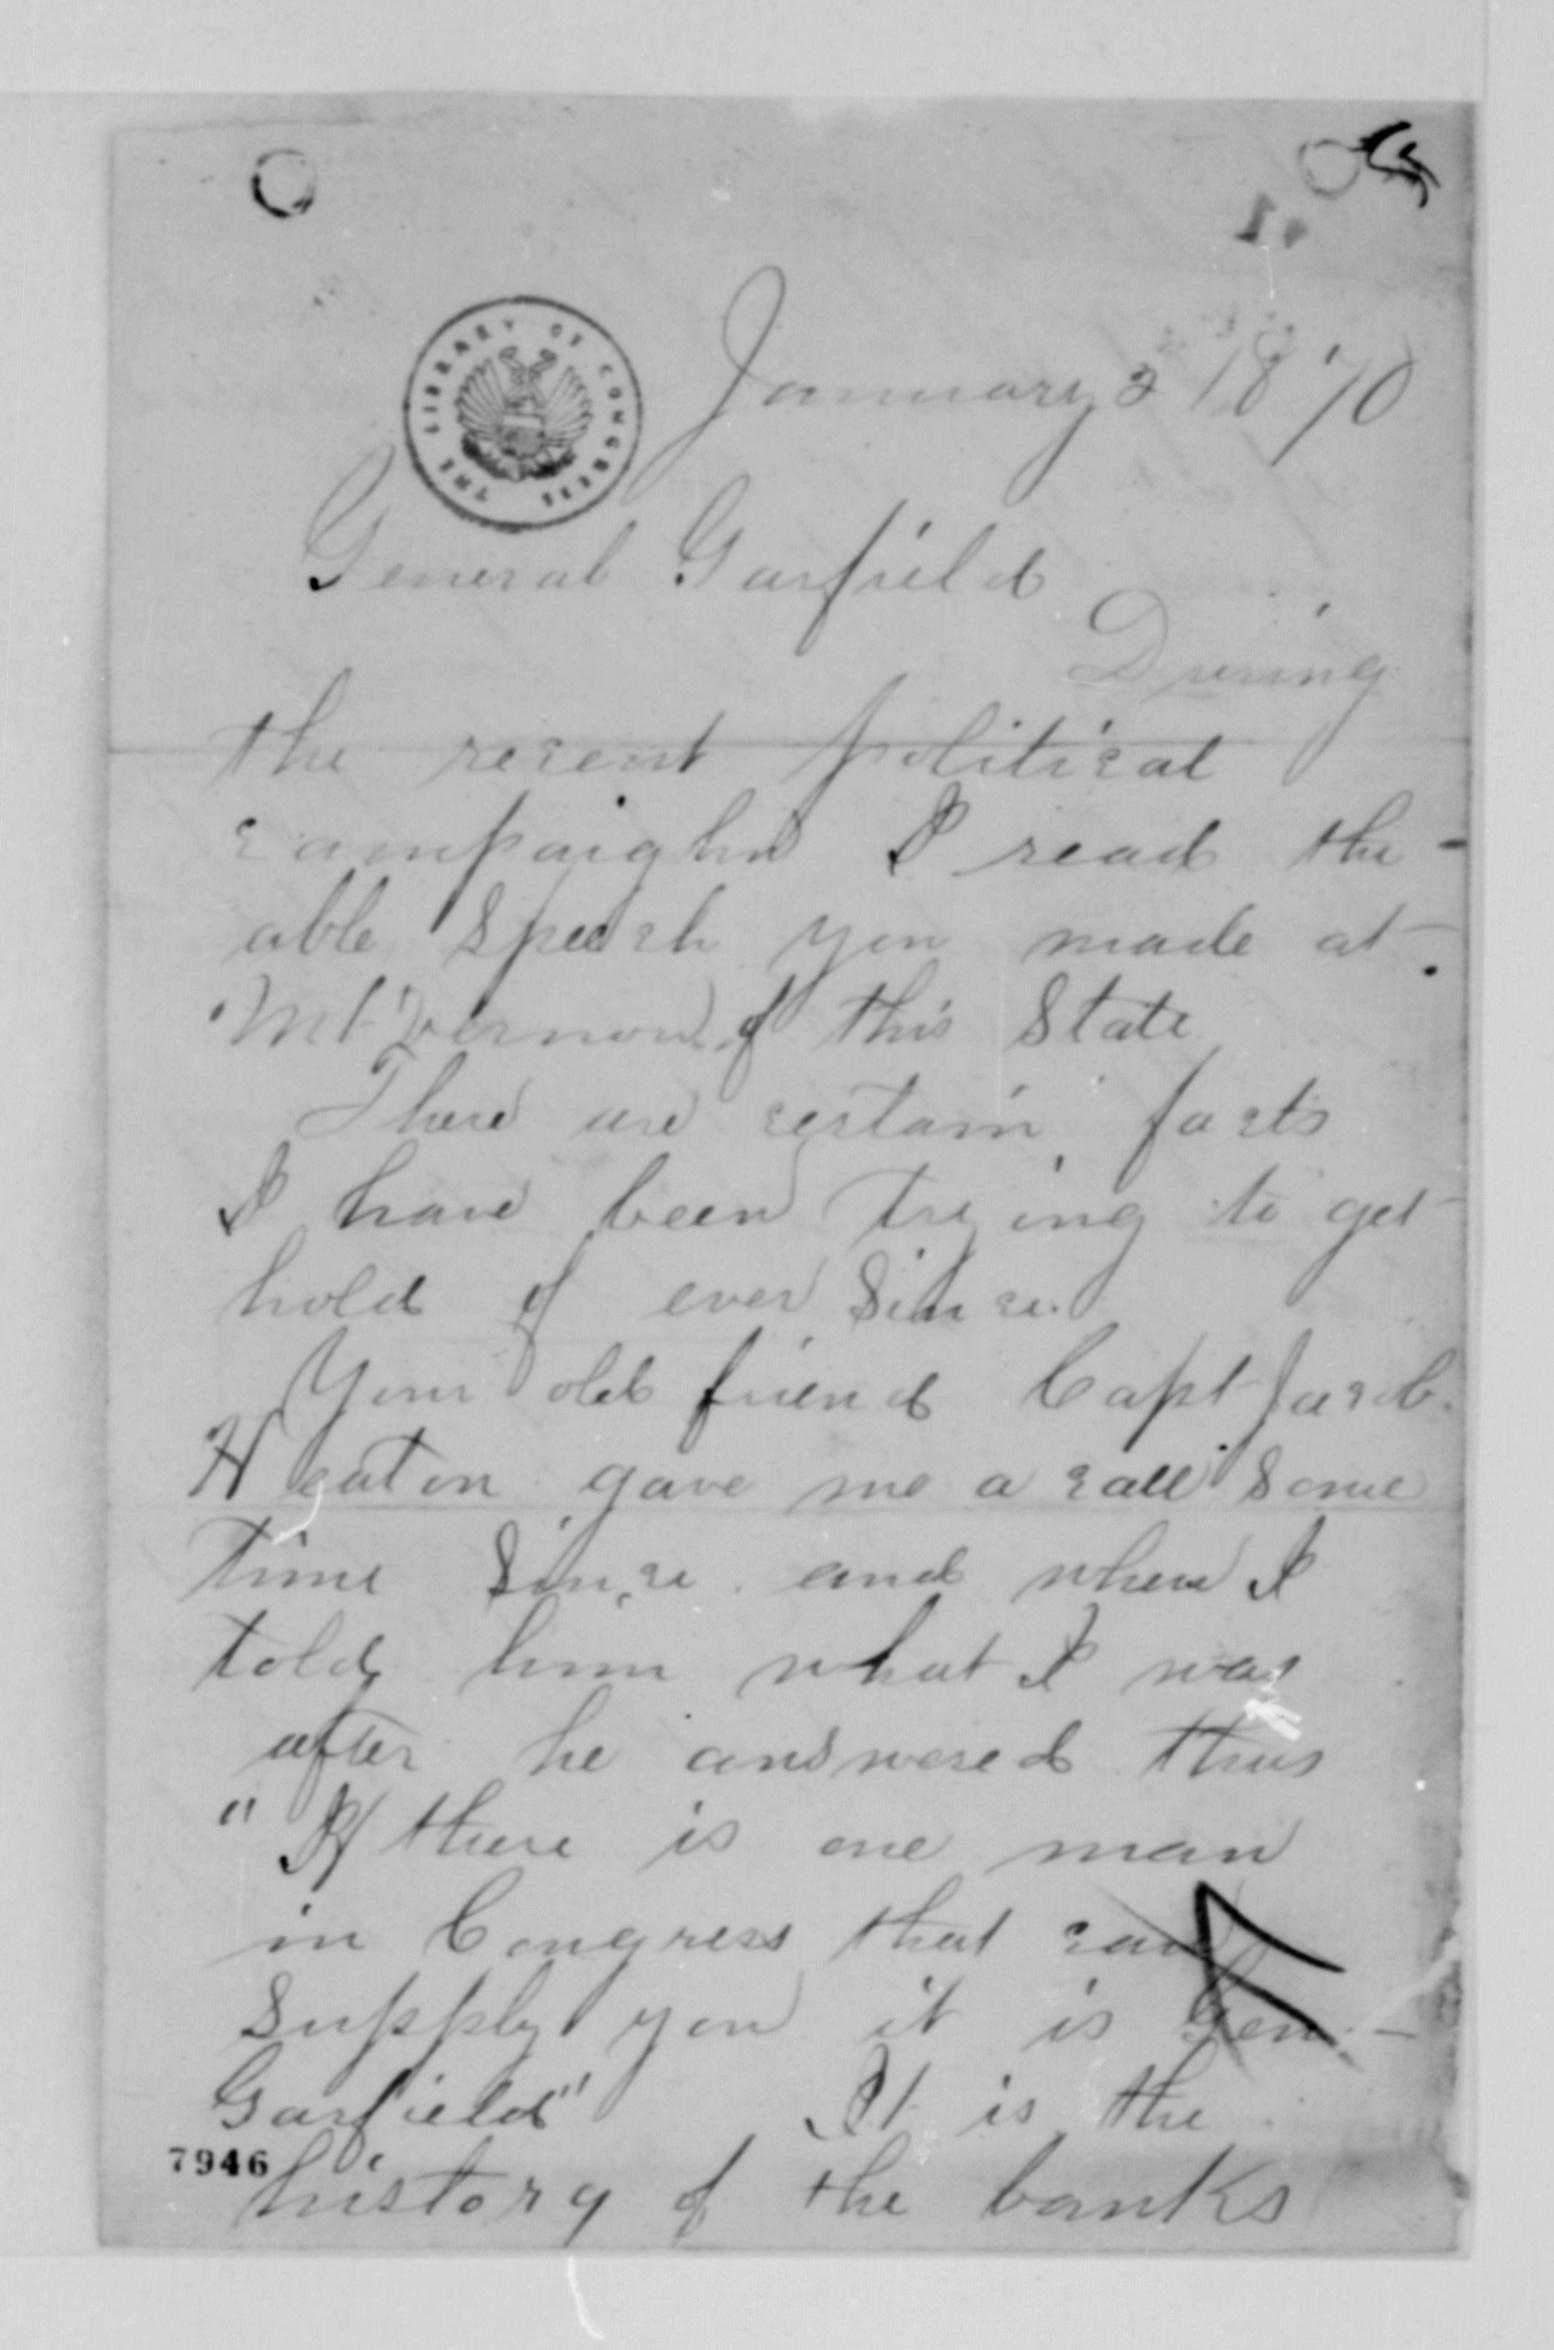 THE LIBRARY OF CONGRESS
January 2 1870
General Garfield
During
the recent political
campaighn I read the
able Speech you made at
Mt Vernon of this State
There are certain facts
I have been trying to get
hold of ever Since.
Your old friend Capt Jacob
Heaton gave me a call Some
time Since and when I
told him what I was
after he answered thus
"If there is one man
in Congress that can
Supply you it is Gen
Garfield" It is the
history of the banks
7946